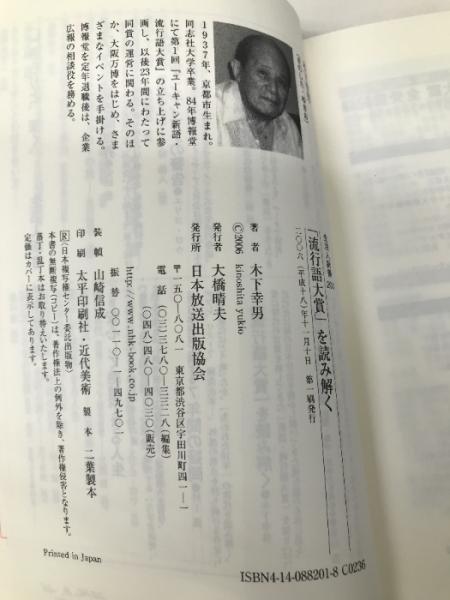 1937年、京都市生まれ。
同志社大学卒業。84年博報堂
にて第1回「ユーキャン新語・
流行語大賞」の立ち上げに参
画し、以後23年間にわたって
同賞の運営に関わる。そのほ
か、大阪万博をはじめ、さま
ざまなイベントを手掛ける。
博報堂を定年退職後は、企業
広報の相談役を務める。
「流行語大賞」を読み解く
二〇〇六(平成十八)年十一月十日 第一刷発行
著者 木下幸男
©2006 kinoshita yukio
発行者 大橋晴夫
発行所 日本放送出版協会
〒一五〇-八〇八一 東京都渋谷区宇田川町四一-一
電話 (〇三)三七八〇-三三二八(編集)
(〇四八)四八〇-四〇三〇(販売)
http://www.nhk-book.co.jp
振替 〇〇一一〇-一-四九七〇一
装幀 山崎信成
印刷 太平印刷社・近代美術 製本 二葉製本
R〈日本複写権センター委託出版物〉
本書の無断複写(コピー)は、著作権法上の例外を除き、著作権侵害となります。
落丁・乱丁本はお取り替えいたします。
定価はカバーに表示してあります。
Printed in Japan
ISBN4-14-088201-8 C0236